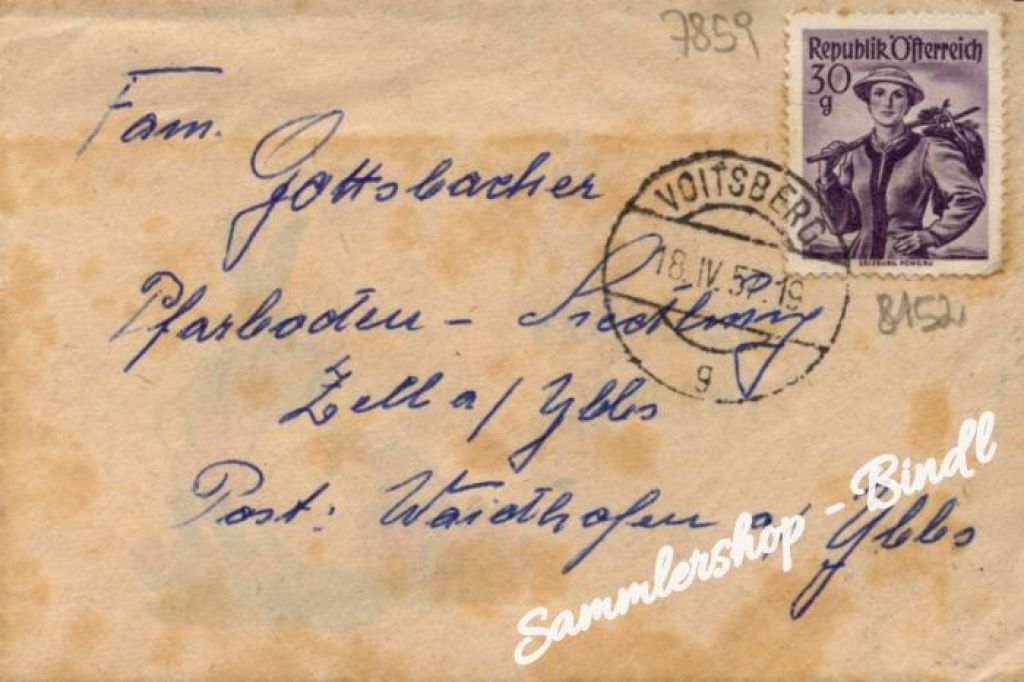 7859
Republik Österreich
30
g
SALZBURG, PONGAU
VOITSBERG
18.IV.57.19
g
8152
Fam.
Gottsbacher
Pfarboden - Siedlung
Zell a/ Ybbs
Post: Waidhofen a/ Ybbs
Sammlershop - Bindl